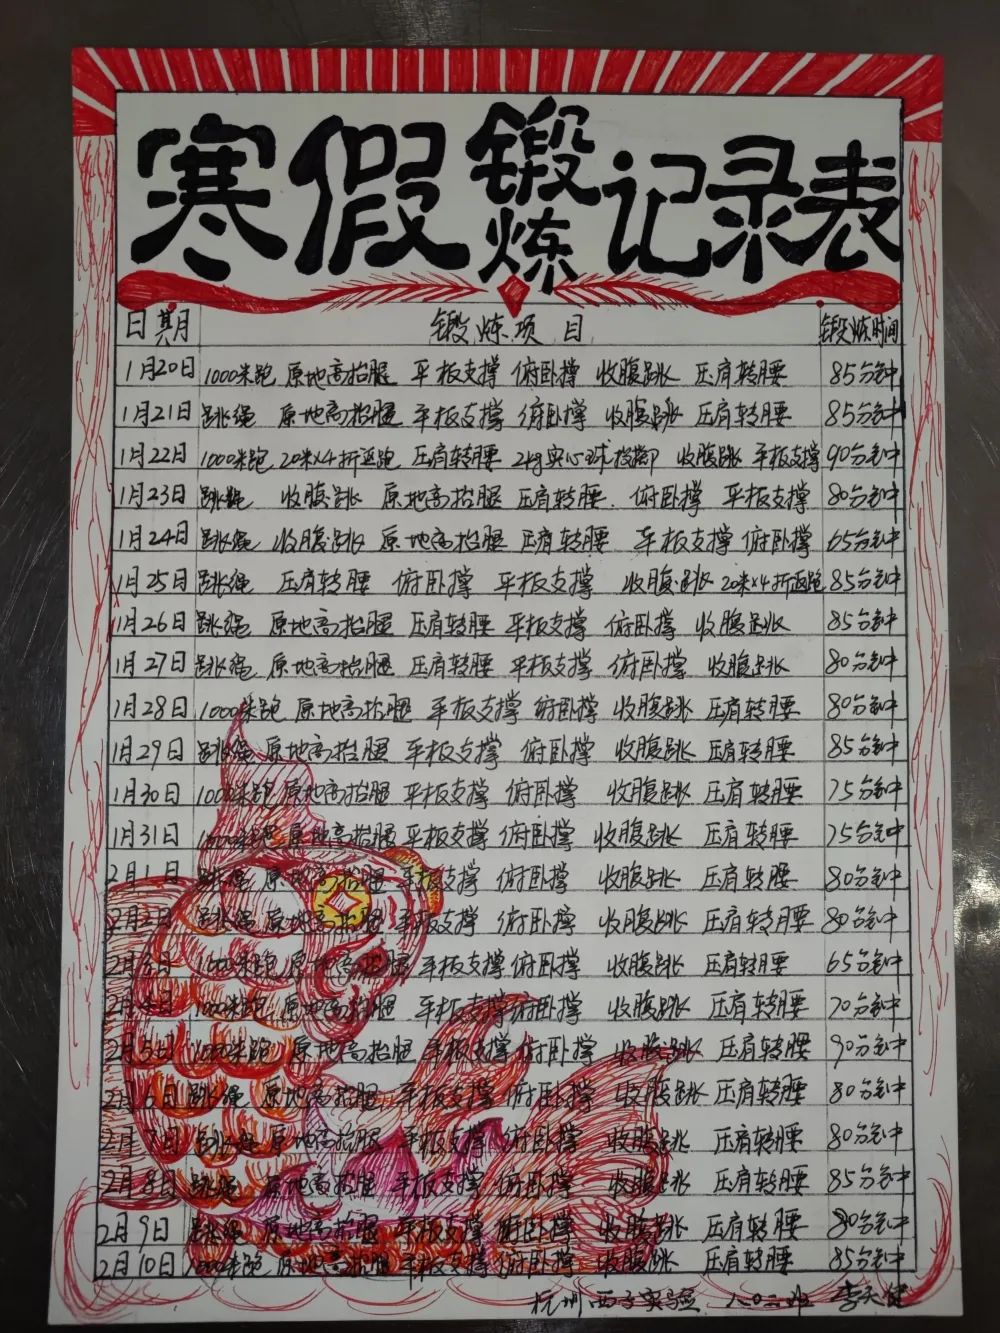 寒假锻炼记录表
日期 锻炼项目 锻炼时间
1月20日 1000米跑 原地高抬腿 平板支撑 俯卧撑 收腹跳 压肩转腰 85分钟
1月21日 跳绳 原地高抬腿 平板支撑 俯卧撑 收腹跳 压肩转腰 85分钟
1月22日 1000米跑 20米×4折返跑 压肩转腰 2kg实心球投掷 收腹跳 平板支撑 90分钟
1月23日 跳绳 收腹跳 原地高抬腿 压肩转腰 俯卧撑 平板支撑 80分钟
1月24日 跳绳 收腹跳 原地高抬腿 压肩转腰 平板支撑 俯卧撑 65分钟
1月25日 跳绳 压肩转腰 俯卧撑 平板支撑 收腹跳 20米×4折返跑 85分钟
1月26日 跳绳 原地高抬腿 压肩转腰 平板支撑 俯卧撑 收腹跳 85分钟
1月27日 跳绳 原地高抬腿 压肩转腰 平板支撑 俯卧撑 收腹跳 80分钟
1月28日 1000米跑 原地高抬腿 平板支撑 俯卧撑 收腹跳 压肩转腰 80分钟
1月29日 跳绳 原地高抬腿 平板支撑 俯卧撑 收腹跳 压肩转腰 85分钟
1月30日 1000米跑 原地高抬腿 平板支撑 俯卧撑 收腹跳 压肩转腰 75分钟
1月31日 1000米跑 原地高抬腿 平板支撑 俯卧撑 收腹跳 压肩转腰 75分钟
2月1日 跳绳 原地高抬腿 平板支撑 俯卧撑 收腹跳 压肩转腰 80分钟
2月2日 跳绳 原地高抬腿 平板支撑 俯卧撑 收腹跳 压肩转腰 80分钟
2月3日 1000米跑 原地高抬腿 平板支撑 俯卧撑 收腹跳 压肩转腰 65分钟
2月4日 1000米跑 原地高抬腿 平板支撑 俯卧撑 收腹跳 压肩转腰 70分钟
2月5日 1000米跑 原地高抬腿 平板支撑 俯卧撑 收腹跳 压肩转腰 90分钟
2月6日 跳绳 原地高抬腿 平板支撑 俯卧撑 收腹跳 压肩转腰 80分钟
2月7日 跳绳 原地高抬腿 平板支撑 俯卧撑 收腹跳 压肩转腰 80分钟
2月8日 跳绳 原地高抬腿 平板支撑 俯卧撑 收腹跳 压肩转腰 85分钟
2月9日 跳绳 原地高抬腿 平板支撑 俯卧撑 收腹跳 压肩转腰 80分钟
2月10日 1000米跑 原地高抬腿 平板支撑 俯卧撑 收腹跳 压肩转腰 85分钟
杭州西子实验 八〇二班 李天健